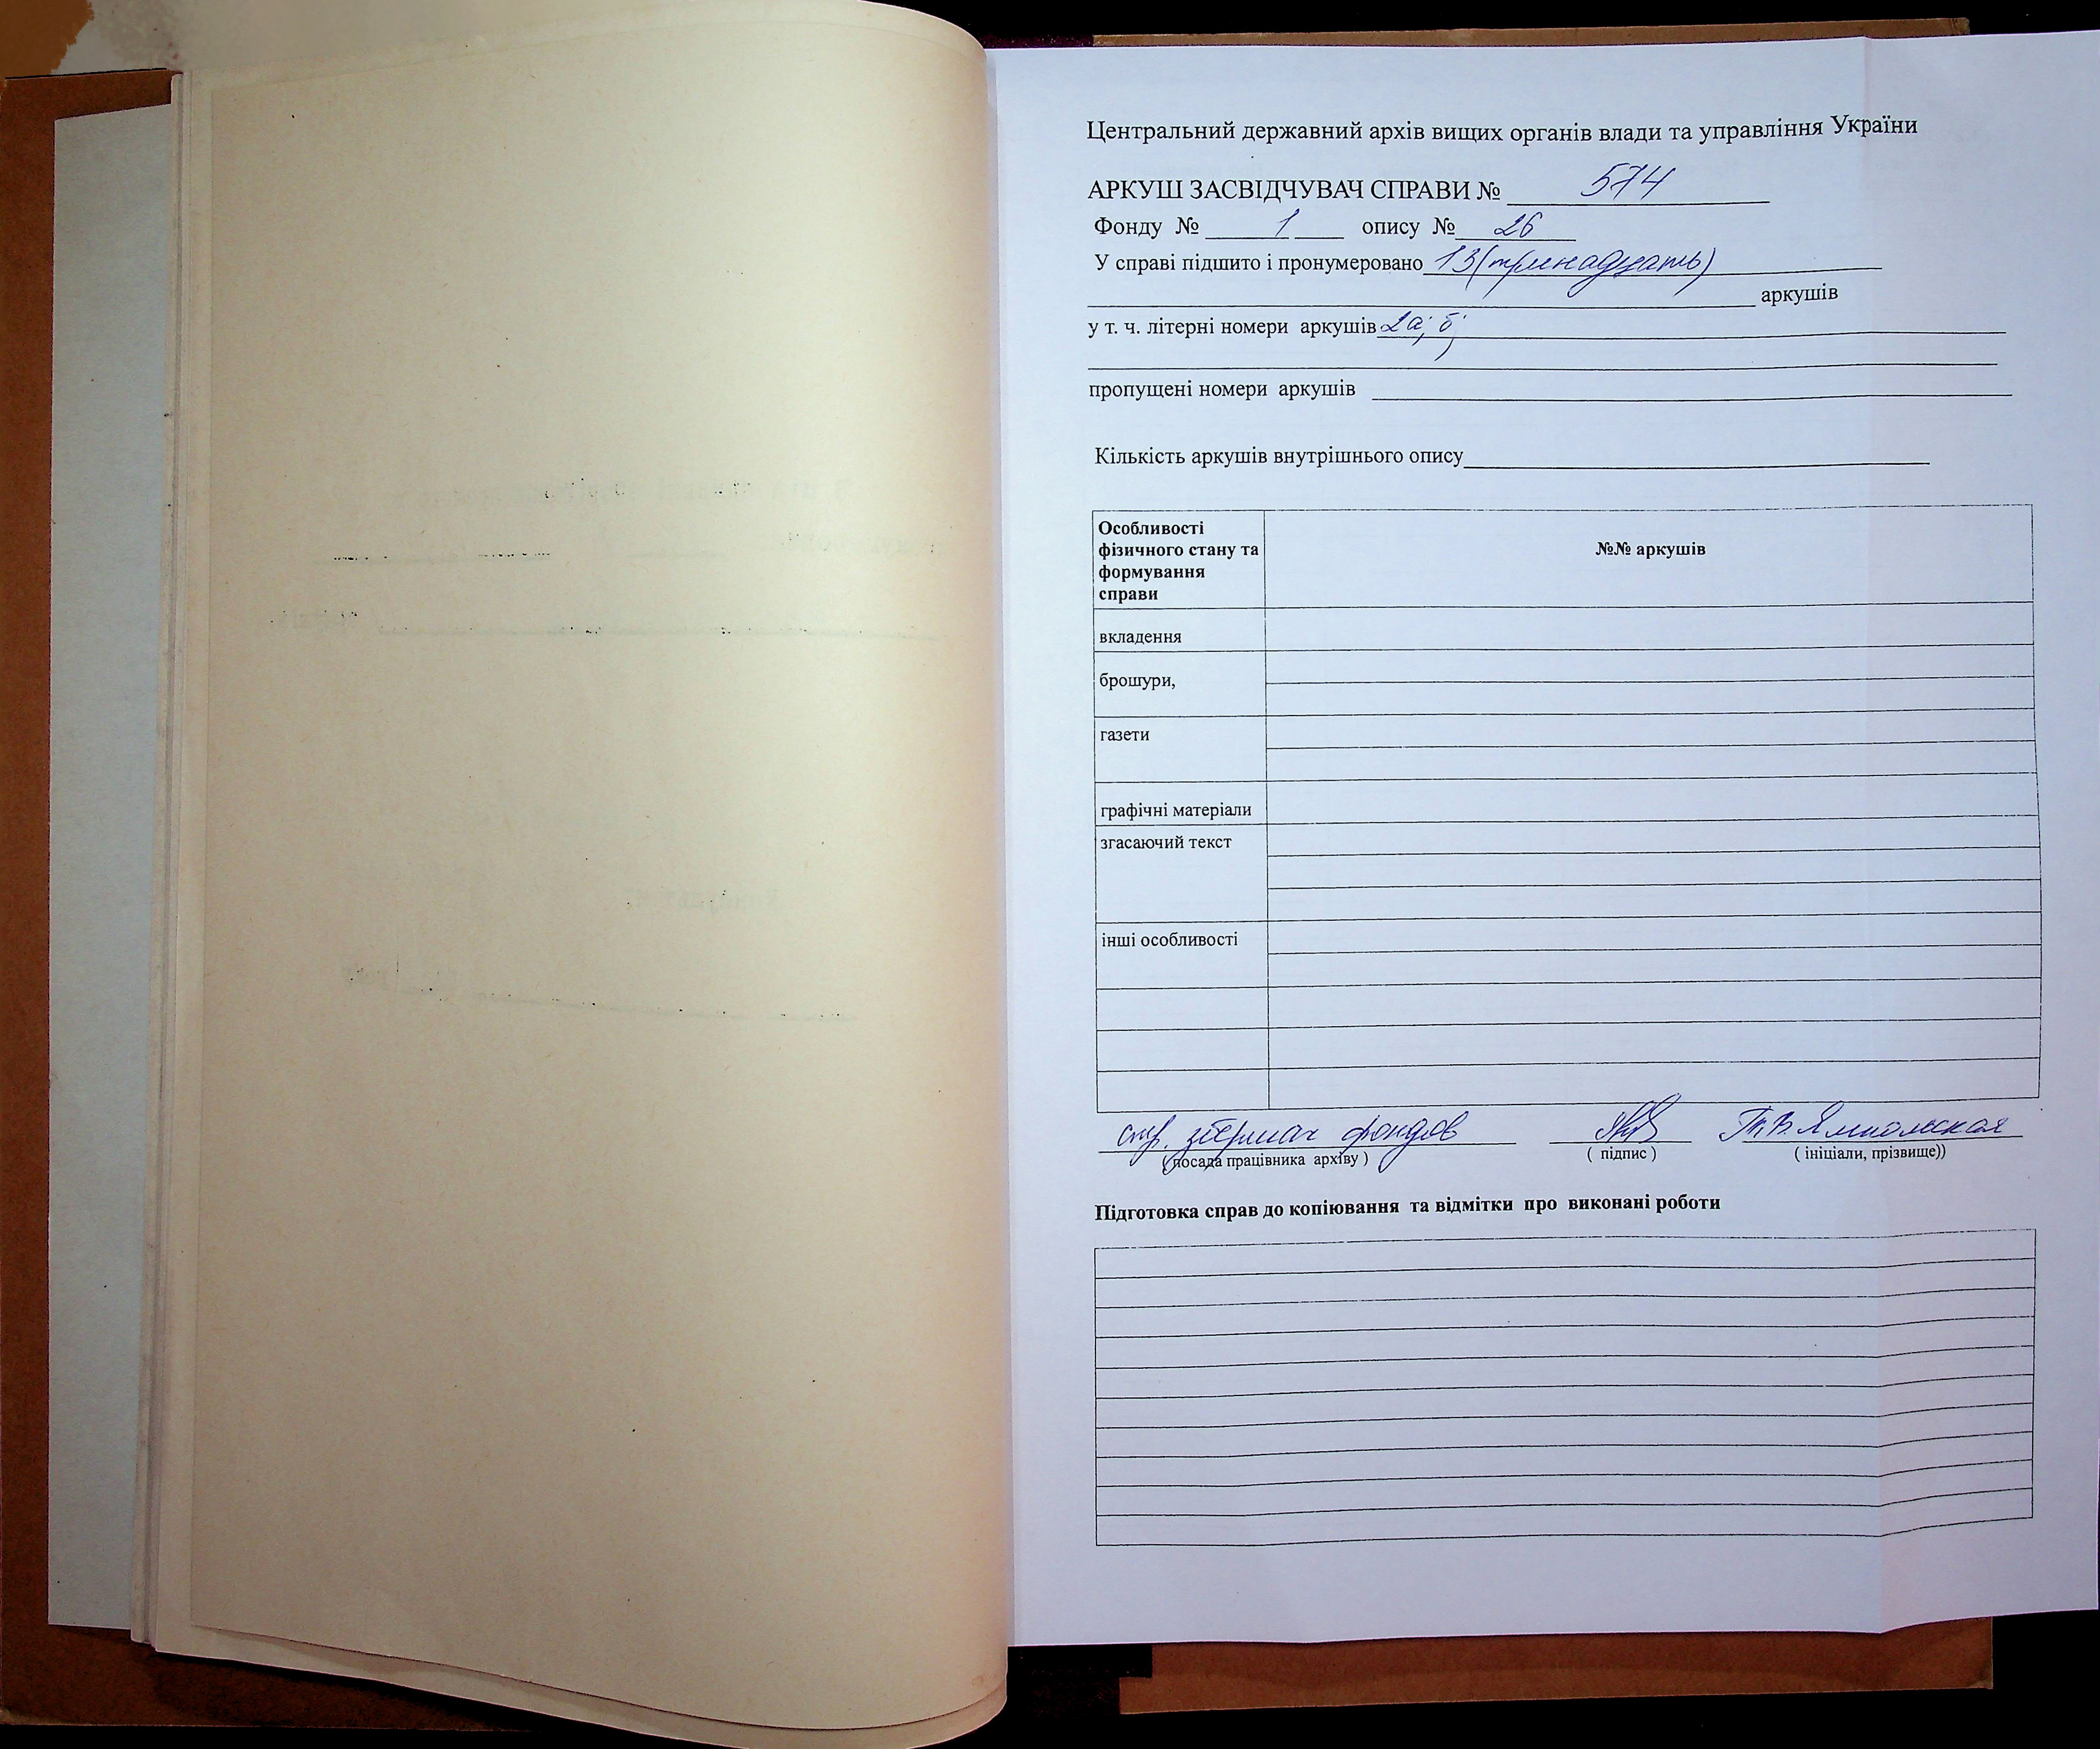 Центральний державний архів вищих органів влади та управління України
АРКУШ ЗАСВІДЧУВАЧ СПРАВИ № 574
Фонду № 1 опису № 26
У справі підшито і пронумеровано 13 (тринадцать)
аркушів
у т. ч. літерні номери аркушів 2а; б;
пропущені номери аркушів
Кількість аркушів внутрішнього опису
Особливості
фізичного стану та
формування
справи
№№ аркушів
вкладення
брошури,
газети
графічні матеріали
згасаючий текст
інші особливості
ст. зберигач фондов
( посада працівника архіву )
( підпис )
( ініціали, прізвище))
Підготовка справ до копіювання та відмітки про виконані роботи